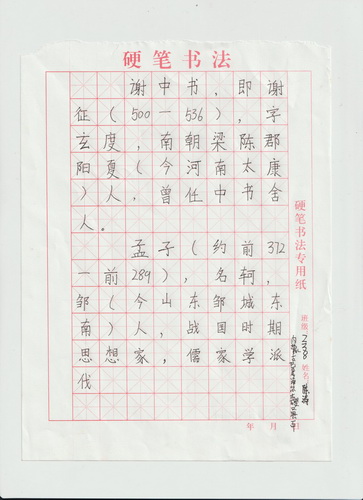 硬笔书法
谢中书，即谢
征（500一536），字
玄度，南朝梁陈郡
阳夏（今河南太康
）人，曾任中书舍
人。
孟子（约前372
一前289），名轲，
邹（今山东邹城东
南）人，战国时期
思想家，儒家学派
代
硬笔书法专用纸
班级 姓名
年 月 日